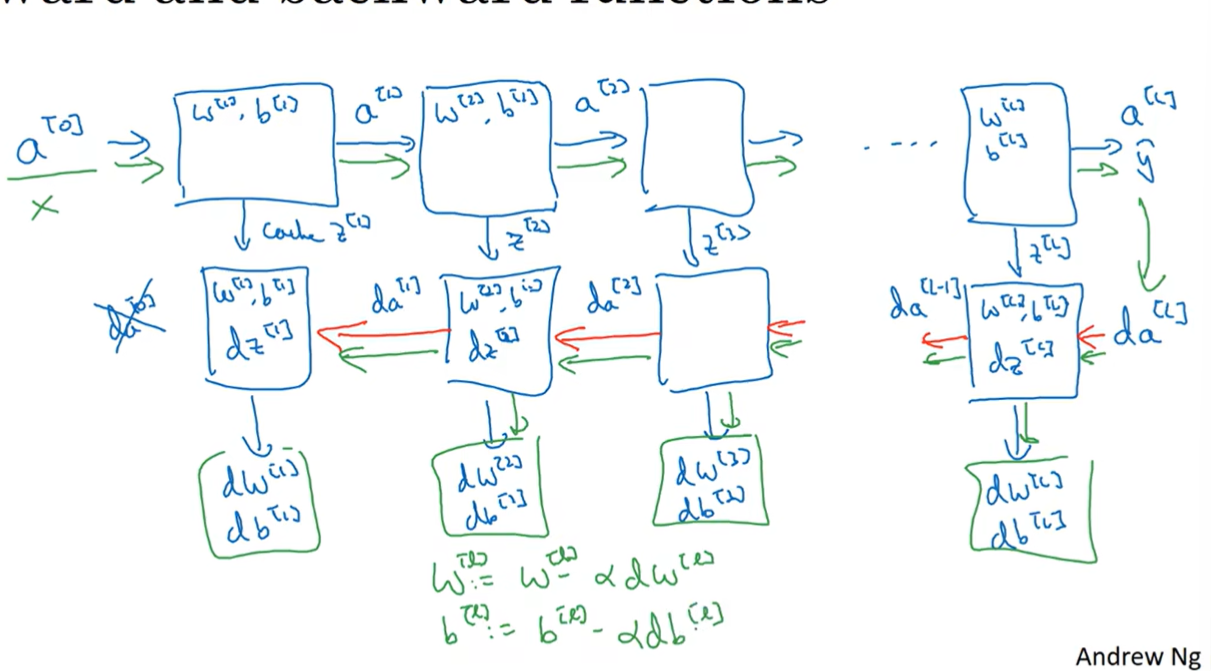 ward and backward functions
a^[0]
x
w^[1], b^[1]
a^[1]
w^[2], b^[2]
a^[2]
. . . .
w^[L]
b^[L]
a^[L]
ŷ
cache z^[1]
z^[2]
z^[3]
z^[L]
da^[0]
w^[1], b^[1]
dz^[1]
da^[1]
w^[2], b^[2]
dz^[2]
da^[2]
da^[L-1]
w^[L], b^[L]
dz^[L]
da^[L]
dw^[1]
db^[1]
dw^[2]
db^[2]
dw^[3]
db^[3]
dw^[L]
db^[L]
w^[l] := w^[l] - αdw^[l]
b^[l] := b^[l] - αdb^[l]
Andrew Ng